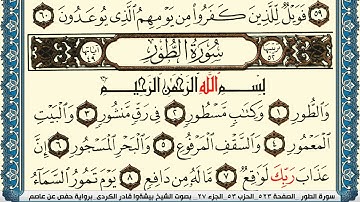 ٥٩ فَوَيْلٌ لِّلَّذِينَ كَفَرُوا۟ مِن يَوْمِهِمُ ٱلَّذِى يُوعَدُونَ ٦٠
سُورَةُ الطُّورِ
بِسْمِ ٱللَّهِ ٱلرَّحْمَٰنِ ٱلرَّحِيمِ
وَٱلطُّورِ ١ وَكِتَٰبٍ مَّسْطُورٍ ٢ فِى رَقٍّ مَّنشُورٍ ٣ وَٱلْبَيْتِ
ٱلْمَعْمُورِ ٤ وَٱلسَّقْفِ ٱلْمَرْفُوعِ ٥ وَٱلْبَحْرِ ٱلْمَسْجُورِ ٦ إِنَّ
عَذَابَ رَبِّكَ لَوَٰقِعٌ ٧ مَّا لَهُۥ مِن دَافِعٍ ٨ يَوْمَ تَمُورُ ٱلسَّمَآءُ
سورة الطور الصفحة ٥٢٣ الحزب ٥٣ الجزء ٢٧ بصوت الشيخ بيشةوا قادر الكردى برواية حفص عن عاصم